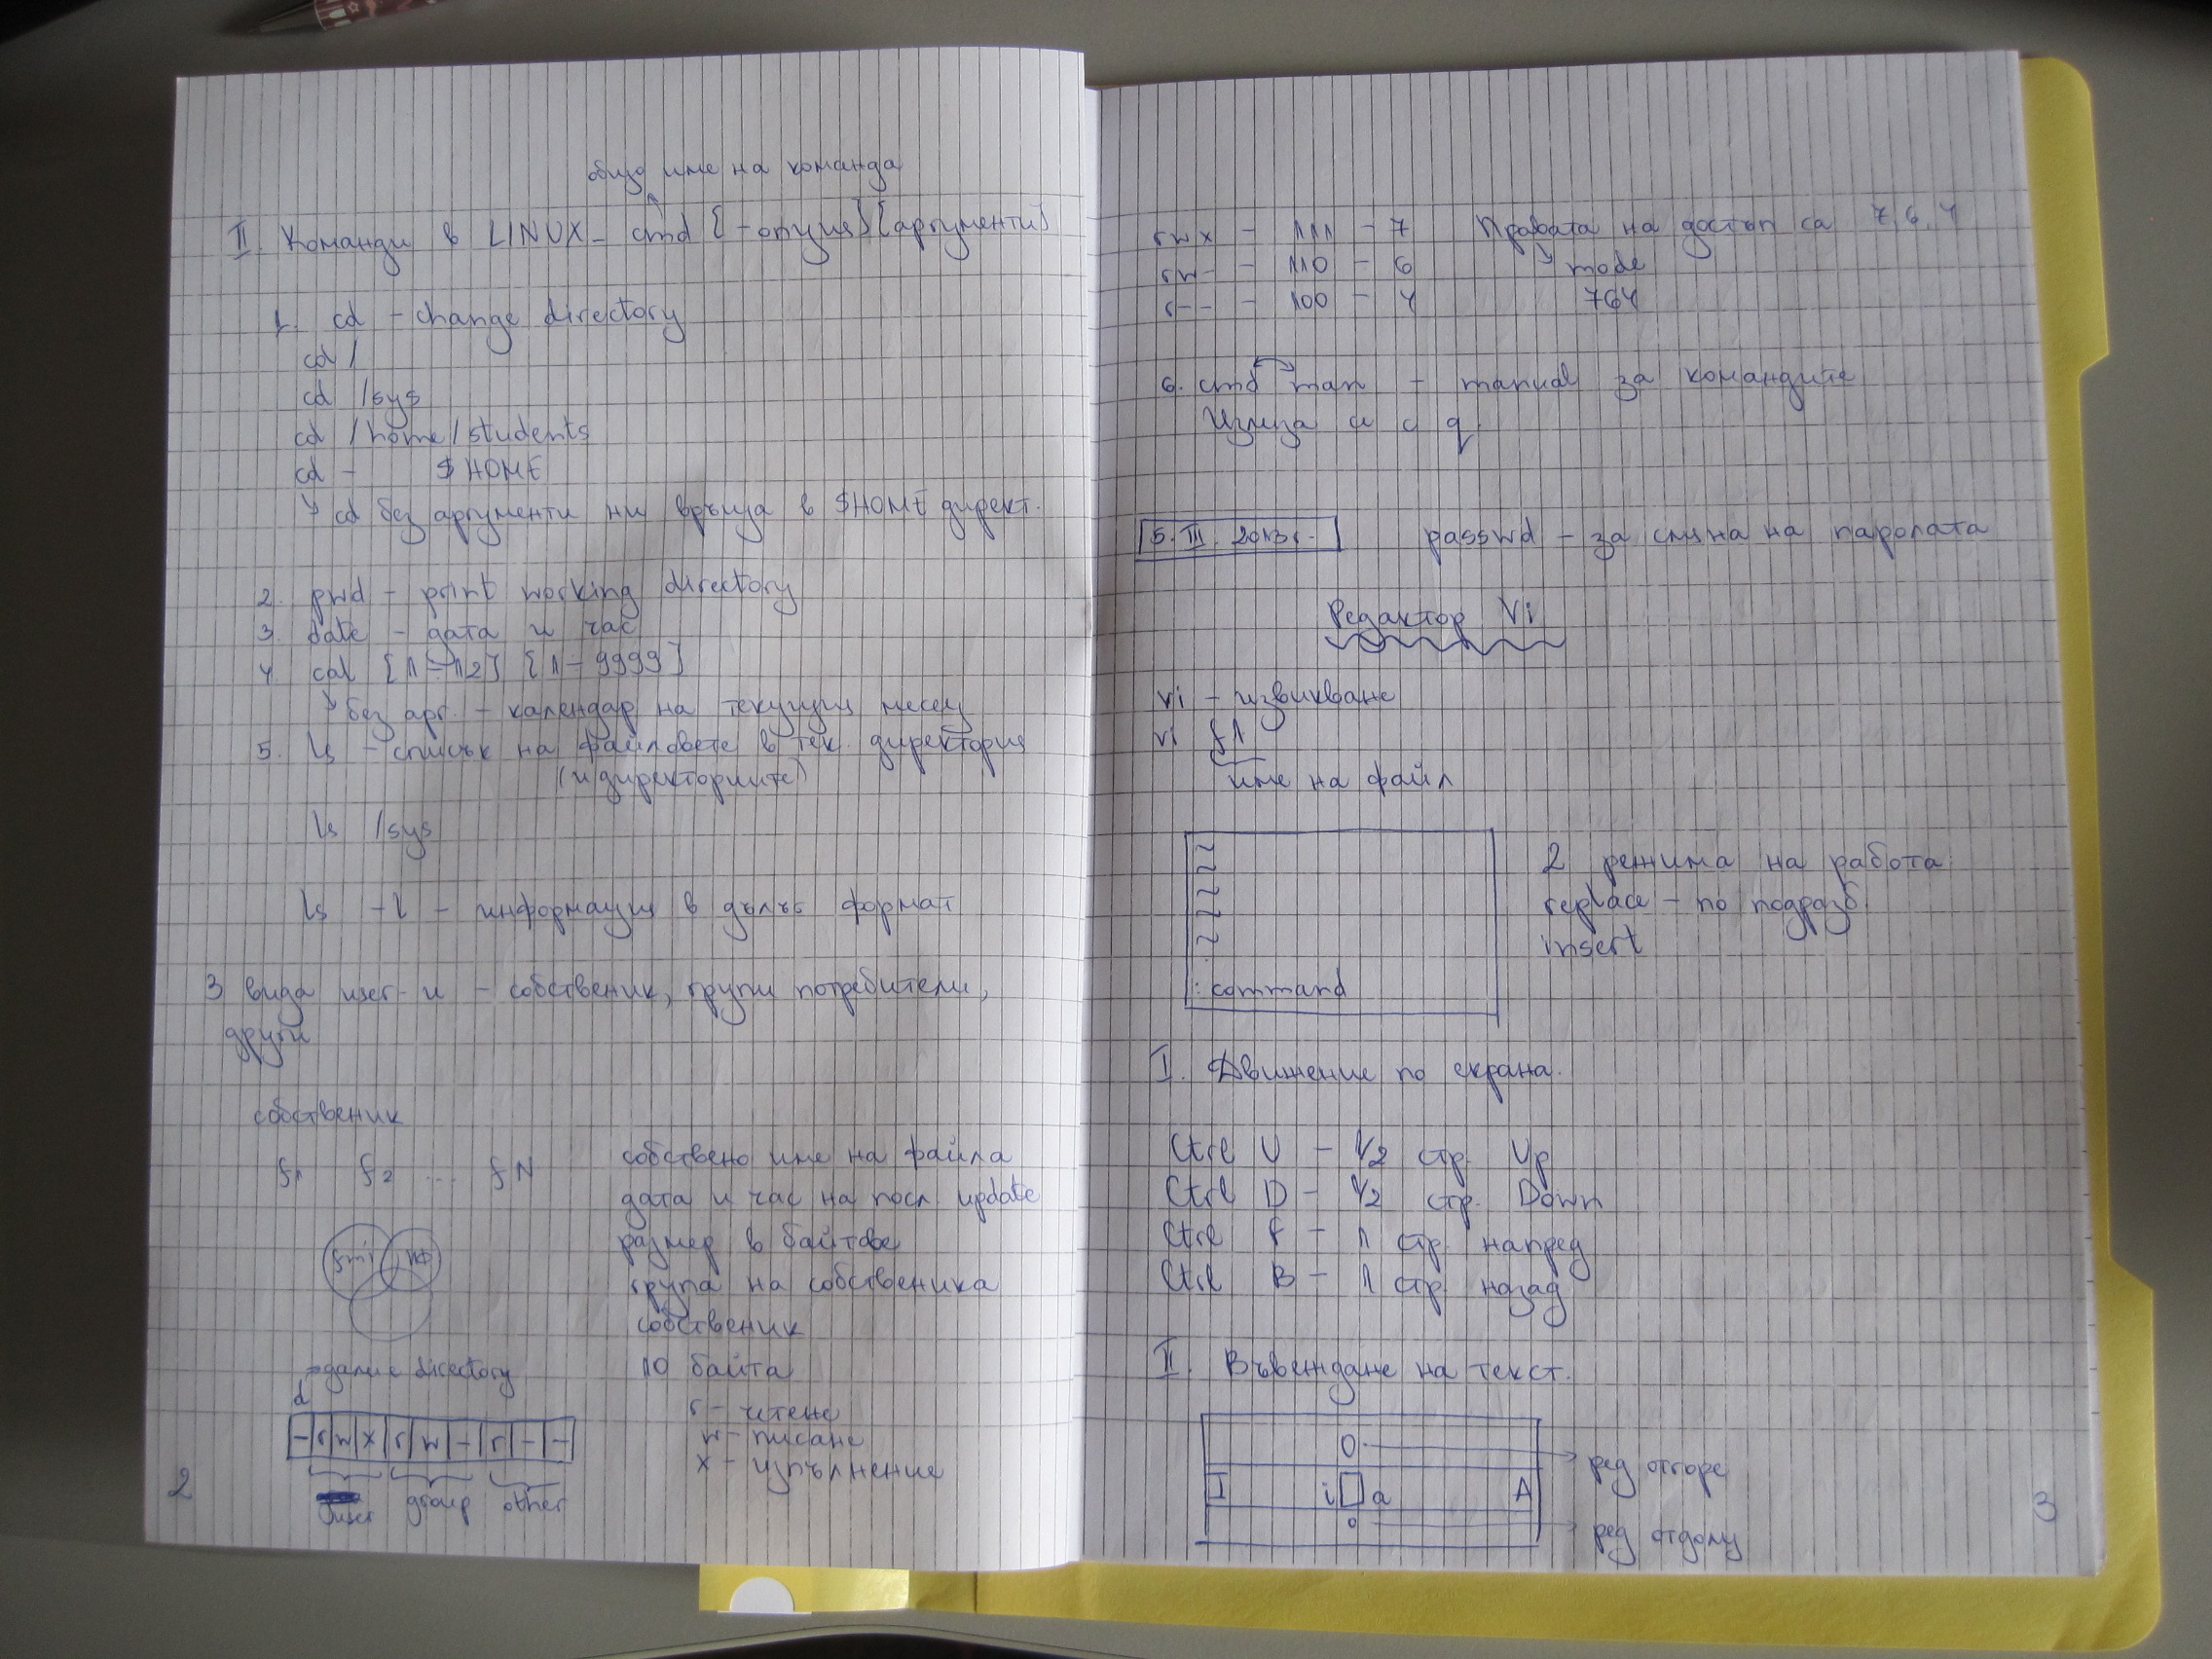 общо име на команда
II. Команди в LINUX - cmd [-опция] [аргументи]
1. cd - change directory
cd /
cd /sys
cd /home/students
cd - $HOME
cd без аргументи ни връща в $HOME директ.
2. pwd - print working directory
3. date - дата и час
4. cal [1-12] [1-9999]
без арг. - календар на текущия месец
5. ls - списък на файловете в тек. директория
(и директориите)
ls /sys
ls -l - информация в дълъг формат
3 вида user-и - собственик, групи потребители,
други
собственик
f1 f2 ... fN
fmi
собствено име на файла
дата и час на посл. update
размер в байтове
група на собственика
собственик
10 байта
r - четене
w - писане
x - изпълнение
дали е directory
d
- r w x r w - r - -
user group other
2
rwx - 111 - 7 Правата на достъп са 7, 6, 4
rw- - 110 - 6 mode
r-- - 100 - 4 764
6. cmd man - manual за командите
Излиза се с q
5. III. 2013г. passwd - за смяна на паролата
Редактор Vi
vi - извикване
vi f1
име на файл
~
~
~
~
~
: command
2 режима на работа
replace - по подразб.
insert
I. Движение по екрана.
Ctrl U - 1/2 стр. Up
Ctrl D - 1/2 стр. Down
Ctrl F - 1 стр. напред
Ctrl B - 1 стр. назад
II. Въвеждане на текст.
O ред отгоре
I i a A
o ред отдолу
3